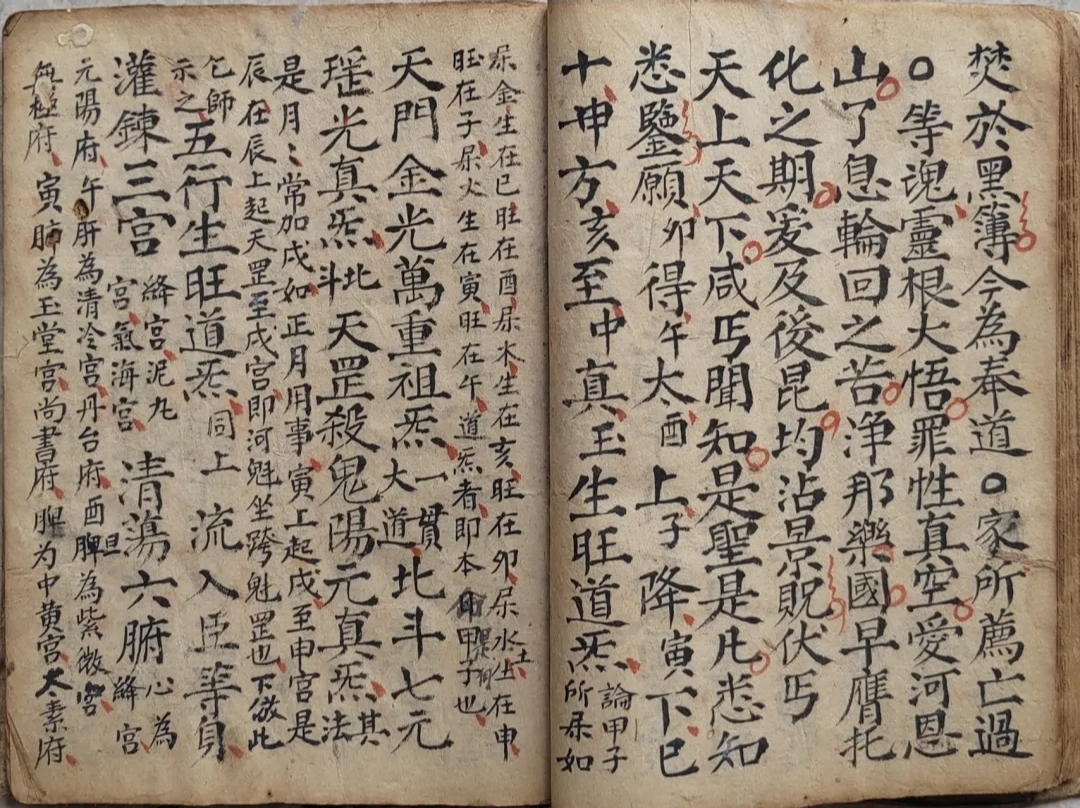 焚於黑簿今為奉道○家所薦亡過
○等魂靈根大悟罪性真空愛河恩
山了息輪回之苦浄那樂國早膺托
化之期爰及後昆均沾景貺伏丐
天上天下咸丐聞知是聖是凡悉知
悉鑒願卯得午太酉上子降寅下巳
十申方亥至中真玉生旺道炁論甲子
所屎如
屎金生在巳旺在酉屎木生在亥旺在卯屎水土生在申
旺在子屎火生在寅旺在午道炁者即本命甲子也
天門金光萬重祖炁一貫
大道北斗七元
瑶光真炁北斗天罡殺鬼陽元真炁其
法
是月月常加戌如正月用事寅上起戌至申宮是
辰在辰上起天罡至戌宮即河魁坐跨魁罡也下倣此
乞師
示之五行生旺道炁同上流入臣等身
灌鍊三宮絳宮泥丸
宮氣海宮清蕩六腑心為
絳宮
元陽府午肝為清冷宮丹台府酉脾為紫微宮
無極府寅肺為玉堂宮尚書府脾为中黄宮太素府